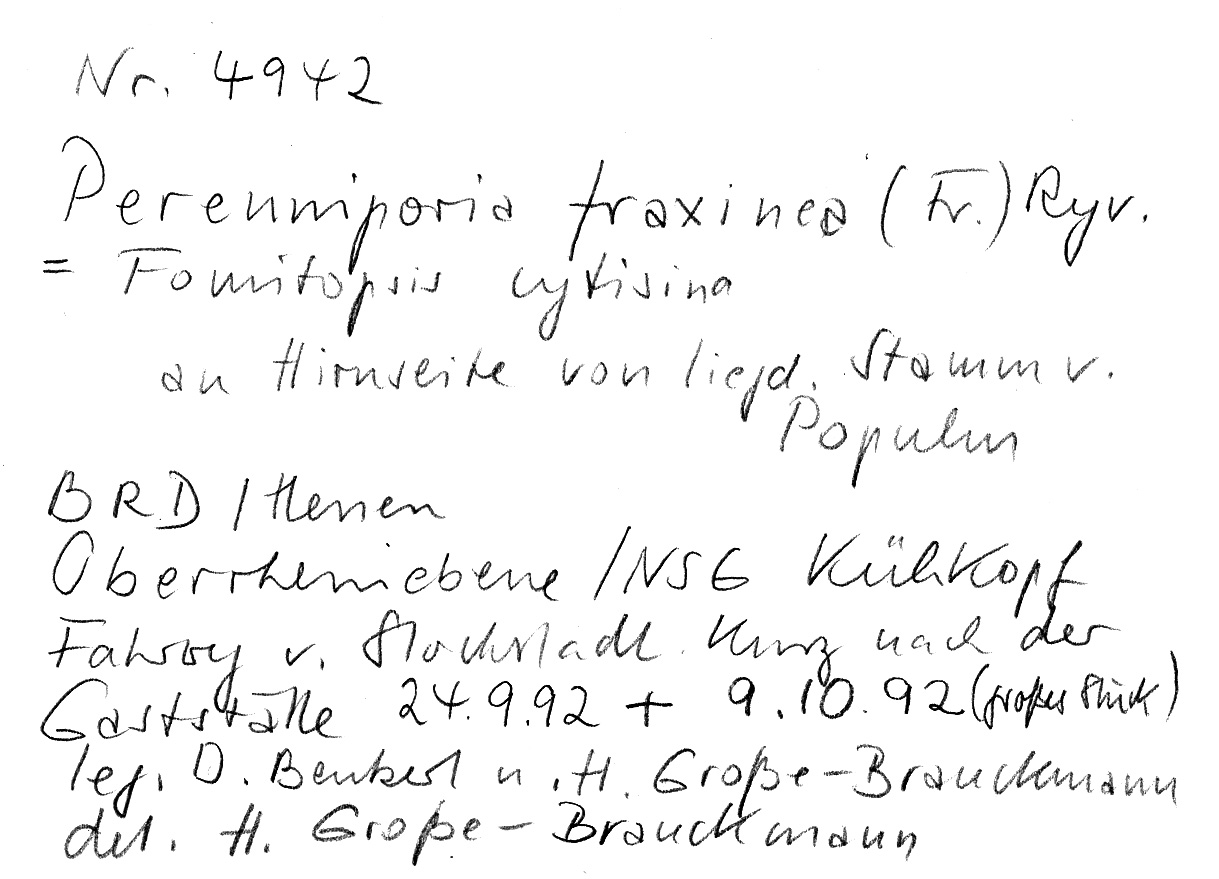 Nr. 4942
Perenniporia fraxinea (Fr.) Ryv.
= Fomitopsis cytisina
an Hirnseite von liegd. Stamm v.
Populus
BRD / Hessen
Oberrheinebene / NSG Kühkopf
Fahrweg v. Stockstadt kurz nach der
Gaststätte 24.9.92 + 9.10.92 (großes Stück)
leg. D. Benkert u. H. Große-Brauckmann
det. H. Große-Brauckmann